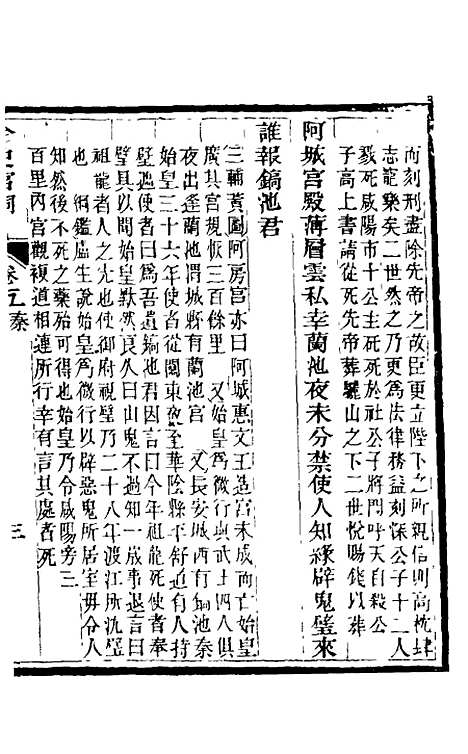 而刻刑盡除先帝之故臣更立陛下之所親信則高枕肆
志寵樂矣二世然之乃更爲法律務益刻深公子十二人
戮死咸陽市十公主矺死於社公子將閭呼天自殺公
子高上書請從死先帝葬驪山之下二世悅賜錢以葬
阿城宮殿薄層雲私幸蘭池夜未分禁使人知緣辟鬼璧來
誰報鎬池君
三輔黃圖阿房宮亦曰阿城惠文王造宮未成而亡始皇
廣其宮規恢三百餘里　又始皇爲微行與武士四人俱
夜出逢蘭池渭城縣有蘭池宮　又長安城西有鎬池秦
始皇三十六年使者從關東夜至華陰縣平舒道有人持
璧遮使者曰爲吾遺鎬池君因言曰今年祖龍死使者奉
璧具以聞始皇默然良久曰山鬼不過知一歲事退言曰
祖龍者人之先也使御府視璧乃二十八年渡江所沈璧
也　綱鑑盧生說始皇爲微行以辟惡鬼所居室毋令人
知然後不死之藥殆可得也始皇乃令咸陽旁二
百里內宮觀複道相連所行幸有言其處者死
全史宮詞
卷五　秦
三